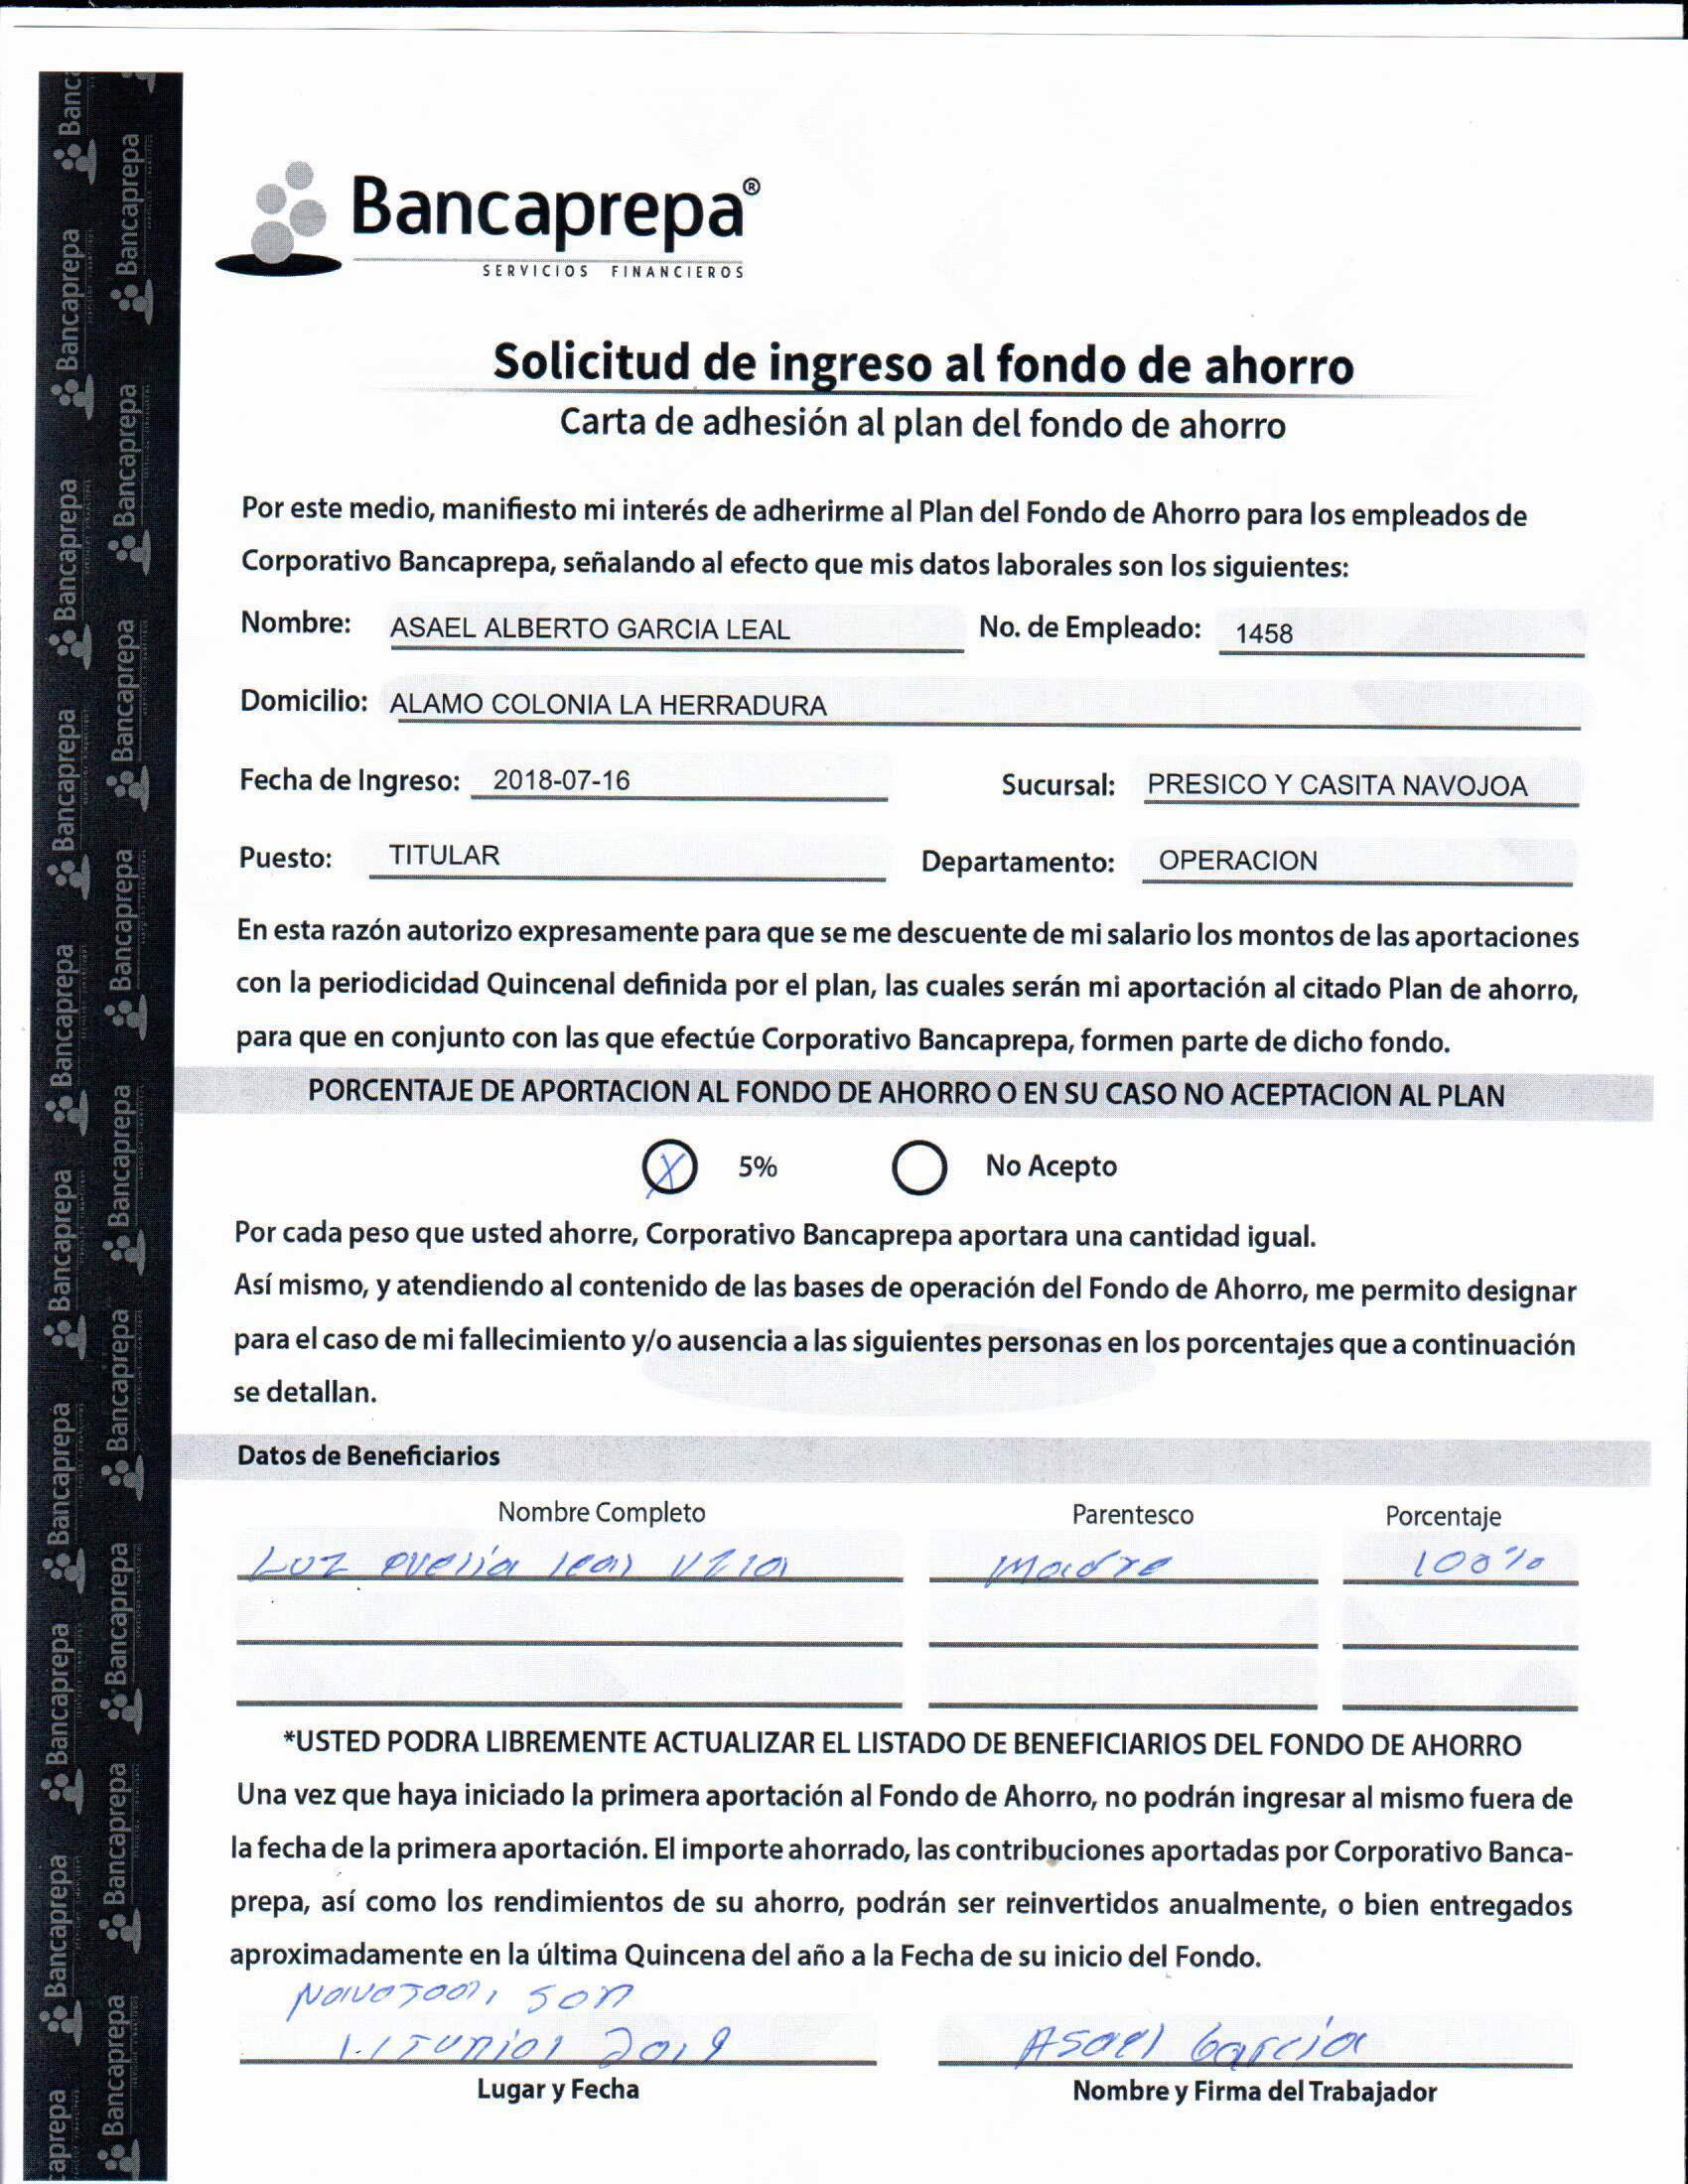 Bancaprepa®
SERVICIOS FINANCIEROS
Solicitud de ingreso al fondo de ahorro
Carta de adhesión al plan del fondo de ahorro
Por este medio, manifiesto mi interés de adherirme al Plan del Fondo de Ahorro para los empleados de
Corporativo Bancaprepa, señalando al efecto que mis datos laborales son los siguientes:
Nombre: ASAEL ALBERTO GARCIA LEAL No. de Empleado: 1458
Domicilio: ALAMO COLONIA LA HERRADURA
Fecha de Ingreso: 2018-07-16 Sucursal: PRESICO Y CASITA NAVOJOA
Puesto: TITULAR Departamento: OPERACION
En esta razón autorizo expresamente para que se me descuente de mi salario los montos de las aportaciones
con la periodicidad Quincenal definida por el plan, las cuales serán mi aportación al citado Plan de ahorro,
para que en conjunto con las que efectúe Corporativo Bancaprepa, formen parte de dicho fondo.
PORCENTAJE DE APORTACION AL FONDO DE AHORRO O EN SU CASO NO ACEPTACION AL PLAN
X 5% No Acepto
Por cada peso que usted ahorre, Corporativo Bancaprepa aportara una cantidad igual.
Así mismo, y atendiendo al contenido de las bases de operación del Fondo de Ahorro, me permito designar
para el caso de mi fallecimiento y/o ausencia a las siguientes personas en los porcentajes que a continuación
se detallan.
Datos de Beneficiarios
Nombre Completo Parentesco Porcentaje
Luz ovelia leal Madre 100%
*USTED PODRA LIBREMENTE ACTUALIZAR EL LISTADO DE BENEFICIARIOS DEL FONDO DE AHORRO
Una vez que haya iniciado la primera aportación al Fondo de Ahorro, no podrán ingresar al mismo fuera de
la fecha de la primera aportación. El importe ahorrado, las contribuciones aportadas por Corporativo Banca-
prepa, así como los rendimientos de su ahorro, podrán ser reinvertidos anualmente, o bien entregados
aproximadamente en la última Quincena del año a la Fecha de su inicio del Fondo.
Navojoa, son
2019 Asael Garcia
Lugar y Fecha Nombre y Firma del Trabajador